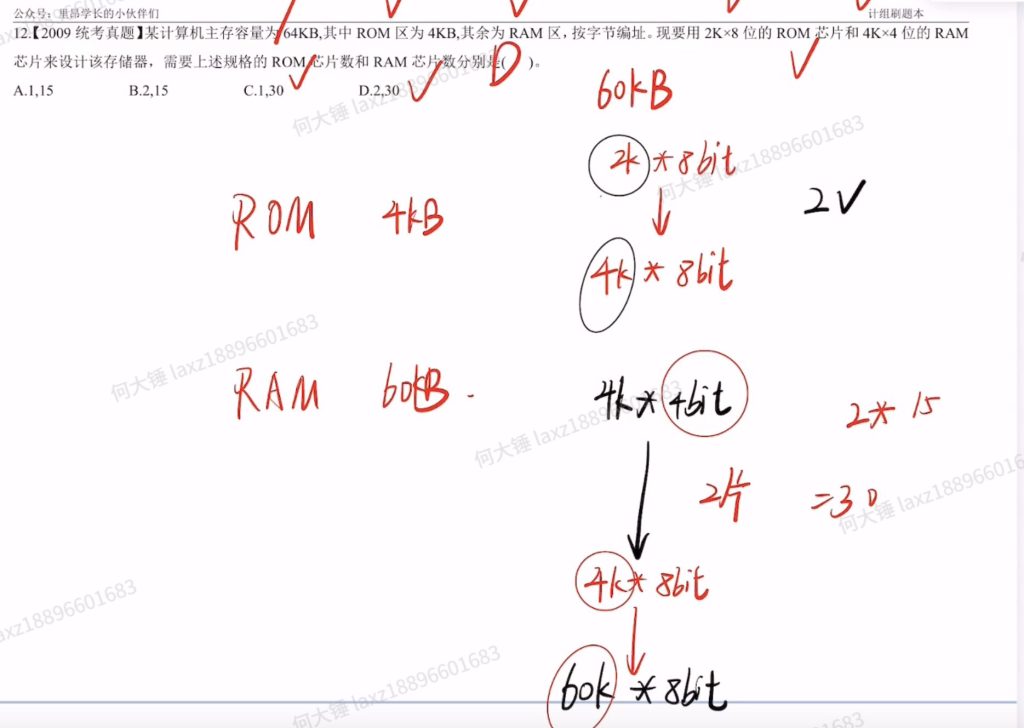 公众号：里昂学长的小伙伴们 计组刷题本
12.【2009 统考真题】某计算机主存容量为 64KB,其中 ROM 区为 4KB,其余为 RAM 区，按字节编址。现要用 2K×8 位的 ROM 芯片和 4K×4 位的 RAM
芯片来设计该存储器，需要上述规格的 ROM 芯片数和 RAM 芯片数分别是( D )。
A.1,15 B.2,15 C.1,30 D.2,30
60kB
2k * 8bit
2 ✓
ROM 4kB
4k * 8bit
RAM 60kB .
4k * 4bit
2 * 15
2片 =30
4k * 8bit
60k * 8bit
何大锤 laxz18896601683
何大锤 laxz18896601683
何大锤 laxz18896601683
何大锤 laxz18896601683
何大锤 laxz1889660168
axz18896601683
何大锤 laxz18896601683